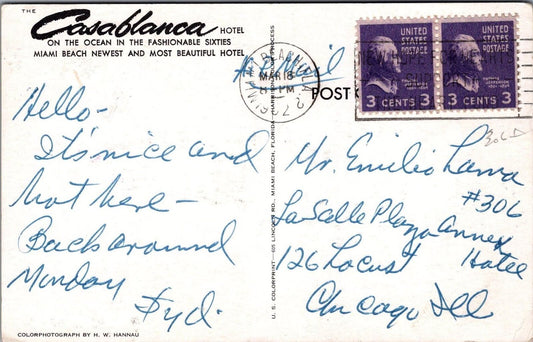 THE
Casablanca HOTEL
ON THE OCEAN IN THE FASHIONABLE SIXTIES
MIAMI BEACH NEWEST AND MOST BEAUTIFUL HOTEL
Hello-
It's nice and
hot here-
Back around
Monday
Syd.
COLORPHOTOGRAPH BY H. W. HANNAU
U. S. COLORPRINT-605 LINCOLN RD., MIAMI BEACH, FLORIDA PROCESS
Air Mail
MIAMI BEACH, FLA. 2
MAR 18
PM
POST
UNITED
STATES
POSTAGE
3 CENTS 3
UNITED
STATES
POSTAGE
3 CENTS 3
Mr. Emilio Lama
#306
LaSalle Plaza Annex
Hotel
126 Locust
Chicago Ill